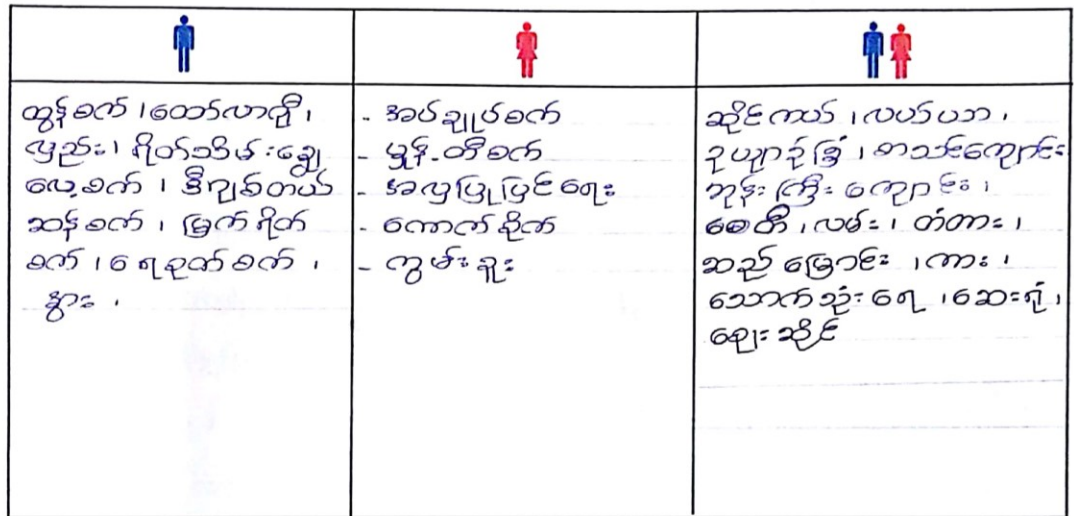 ထွန်စက်၊ထော်လာဂျီ၊
လှည်း၊ ရိတ်သိမ်းချွေ
လှေ့စက်၊ ဒီဂျစ်တယ်
ဆန်စက်၊ မြက်ရိတ်
စက်၊ရေစုတ်စက်၊
နွား၊
- အပ်ချုပ်စက်
- မှုန့်တီစက်
- အလှပြုပြင်ရေး
- ကောက်စိုက်
- ကွမ်းခူး
ဆိုင်ကယ်၊လယ်ယာ၊
ဥယျာဉ်ခြံ၊စာသင်ကျောင်း
ဘုန်းကြီးကျောင်း၊
စေတီ၊လမ်း၊တံတား၊
ဆည်မြောင်း၊ကား၊
သောက်သုံးရေ၊ဆေးရုံ၊
ဈေးဆိုင်